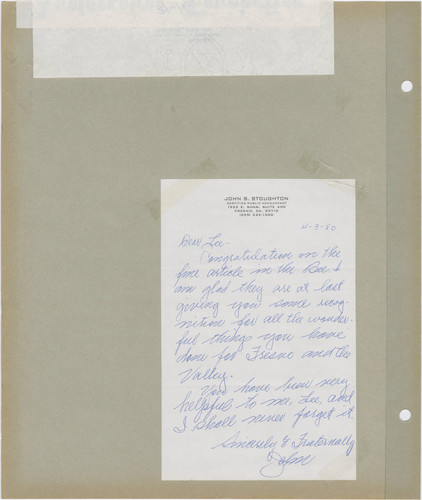 JOHN S. STOUGHTON
CERTIFIED PUBLIC ACCOUNTANT
FRESNO, CA. 93710
4-3-80
Dear Lee-
Congratulation on the
fine article in the Bee. I
am glad they are at last
giving you some recog-
nition for all the wonder-
ful things you have
done for Fresno and the
Valley.
You have been very
helpful to me, Lee, and
I shall never forget it.
Sincerely & Fraternally
John